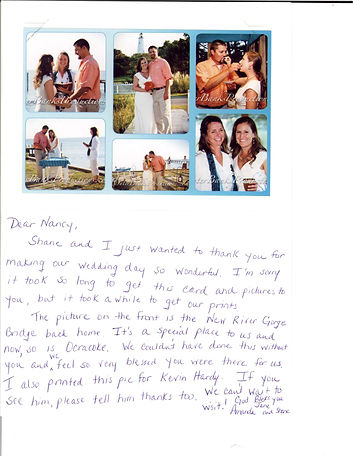 Dear Nancy,
Shane and I just wanted to thank you for
making our wedding day so wonderful. I'm sorry
it took so long to get this card and pictures to
you, but it took a while to get our prints.
The picture on the front is the New River Gorge
Bridge back home. It's a special place to us and
now, so is Ocracoke. We couldn't have done this without
you and we feel so very blessed you were there for us.
I also printed this pic for Kevin Hardy. If you
see him, please tell him thanks too. We can't wait to
visit! God Bless you
Amanda and Shane